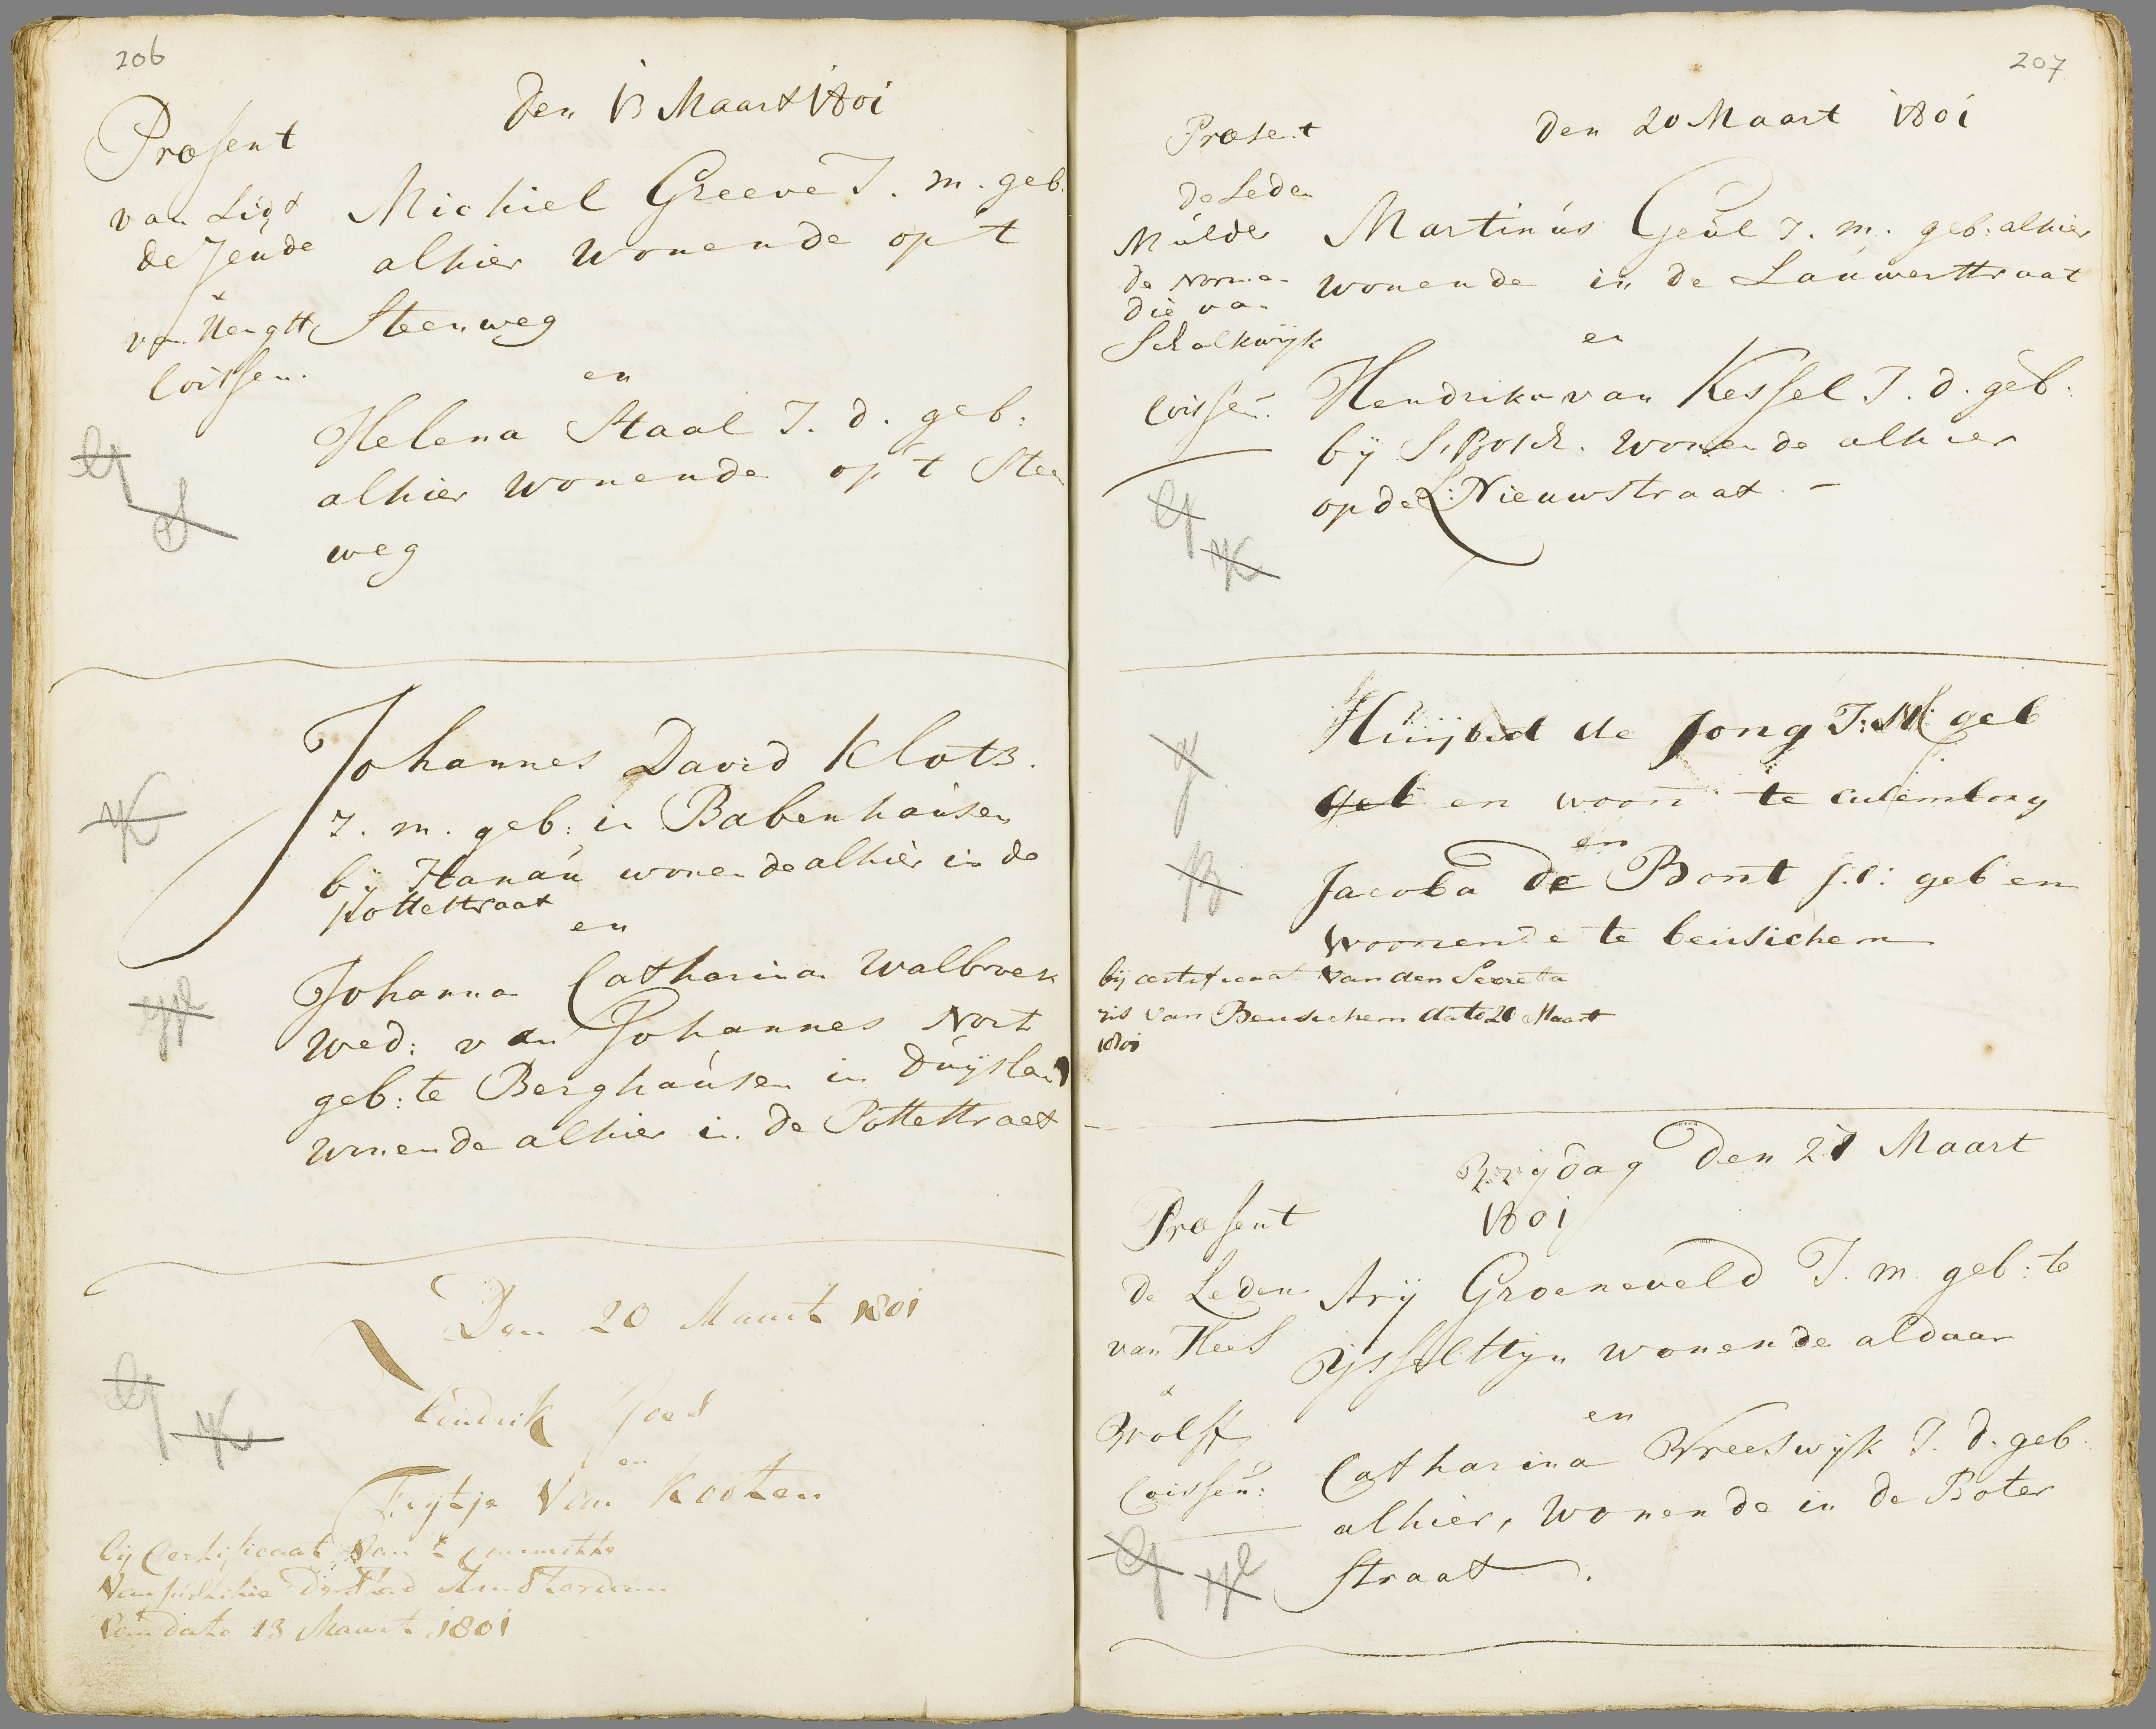 206
Den 13 Maart 1801
Præsent
van Ligt
de Jende
&
van Hengst
Coissen.
Michiel Greeve J. m. geb.
alhier wonende op 't
Steenweg
en
Helena Staal J. d. geb:
alhier wonende op 't Steen
weg
Johannes David Klots.
J. m. geb: in Babenhausen
bij Hanau wonende alhier in de
Pottestraat
en
Johanna Catharina Walbroek
Wed: van Johannes Nort
geb: te Berghausen in Duijsland
wonende alhier in de Pottestraat
Den 20 Maart 1801
Hendrik Goes
en
Fijtje Van Kooten
bij Certificaat Van 't Committe
Van Justitie der Stad Amsterdam
Van dato 13 Maart 1801
207
Den 20 Maart 1801
Præsent
de Leden
Mulder
de Norman
die van
Schalkwijk
Coissen.
Martinus Geul J. m. geb: alhier
wonende in de Lauwerstraat
en
Hendrika van Kessel J. d. geb:
bij S. Bosch. wonende alhier
op de L: Nieuwstraat -
Huijbert de Jong J: M: geb
geb en woon te Culemborg
en
Jacoba de Bont J: d: geb en
woonende te beusichem
bij certificaat van den Secreta
ris van Beusichem dato 20 Maart
1801
Vrijdag den 27 Maart
1801
Præsent
de Leden
van Hees
&
Wolff
Coissen:
Arij Groeneveld J. m. geb: te
IJsselstijn wonende aldaar
en
Catharina Vreeswijk J. d. geb.
alhier, wonende in de Boter
Straat.